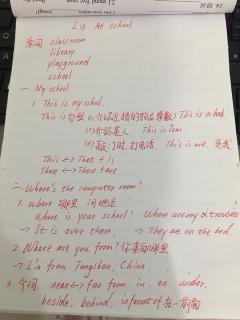 L13 At school
单词 classroom
library
playground
school
一. My school
1. This is my school.
This is 句型 (1) 介绍近处的物品 This is a book
(2) 介绍某人 This is Tom.
This is me. 是我
This ↔ That + is
These ↔ Those + are
二. Where's the computer room?
1. where 哪里 问地点
Where is your school? Where are my trousers
→ It is over there. → They are on the bed
2. Where are you from? 你来自哪里
→ I'm from Tangshan, China
3. 介词 near ↔ far from, in, on, under,
beside, behind, in front of 在…前面